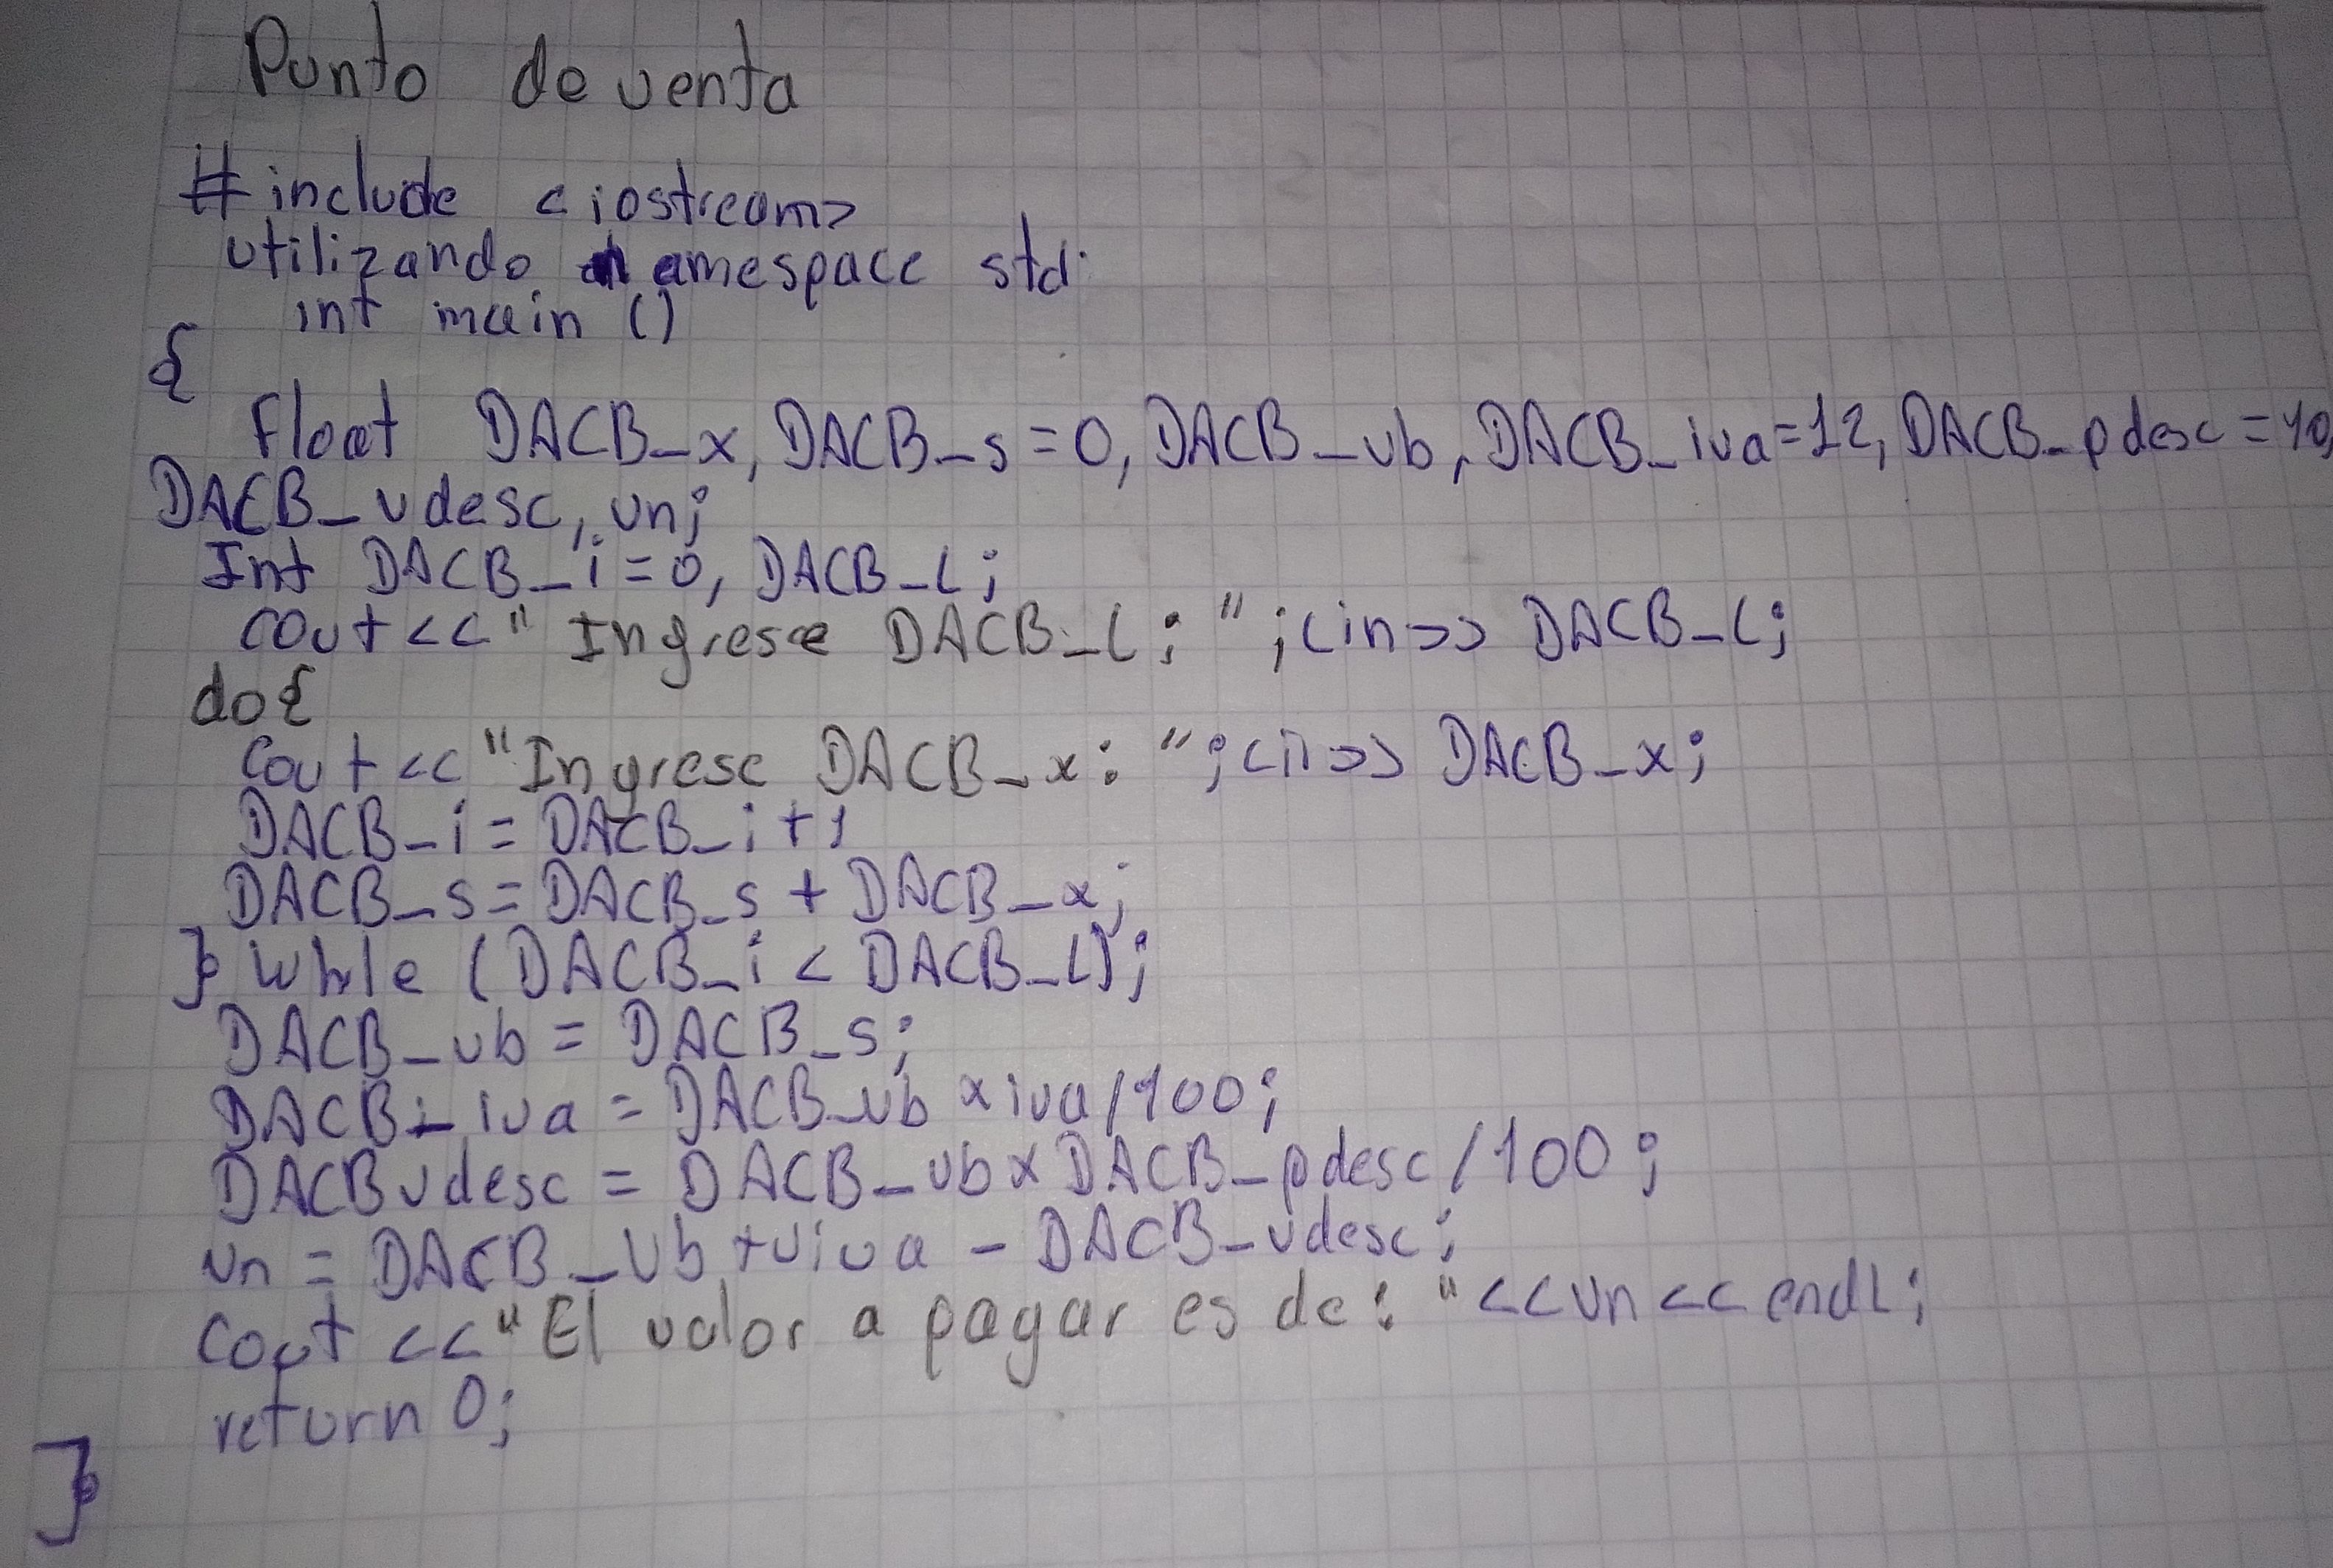 Punto de venta
#include <iostream>
utilizando namespace std:
int main ()
{
Float DACB_x, DACB_s=0, DACB_vb, DACB_iva=12, DACB_pdesc=10,
DACB_vdesc, vn;
Int DACB_i=0, DACB_L;
cout<<" Ingrese DACB_L: ";cin>> DACB_L;
do{
cout<<"Ingrese DACB_x: ";cin>> DACB_x;
DACB_i = DACB_i+1
DACB_s= DACB_s + DACB_x;
} while (DACB_i < DACB_L);
DACB_vb = DACB_s;
DACB_iva = DACB_vb x iva/100;
DACBvdesc = DACB_vb x DACB_pdesc/100;
vn = DACB_Vb +viva - DACB_vdesc;
Cout <<"El valor a pagar es de: "<<vn<< endL;
return 0;
}